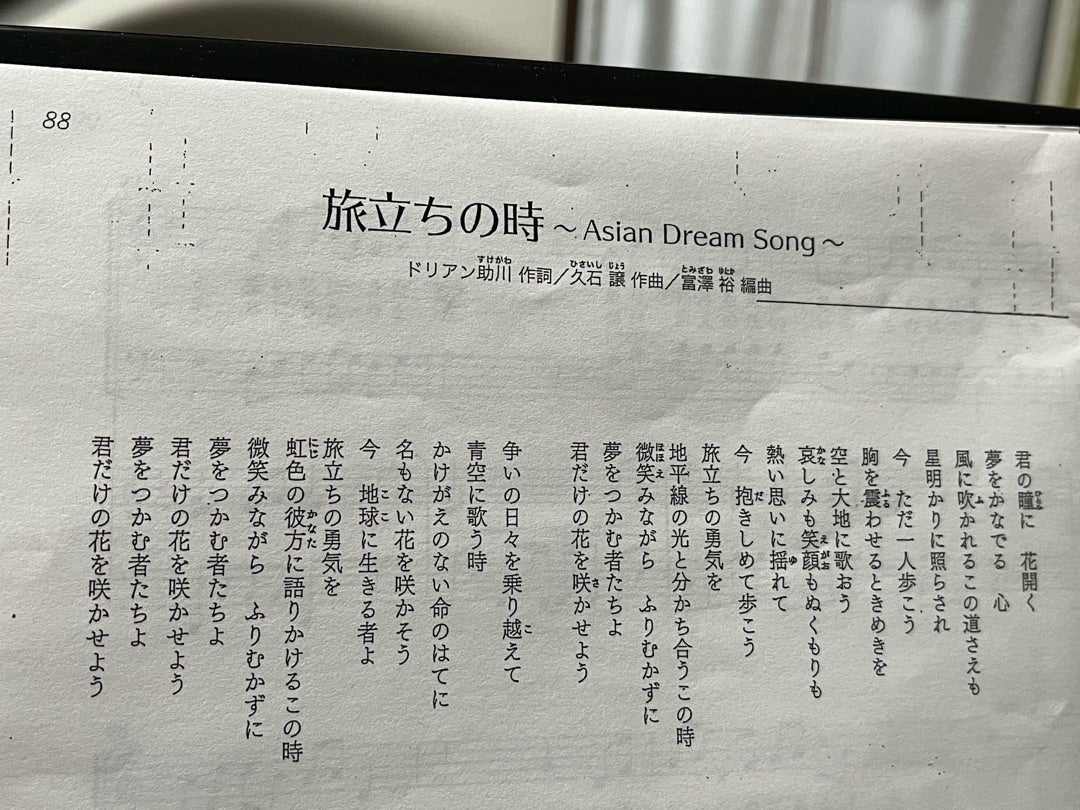 88
旅立ちの時 ～Asian Dream Song～
ドリアン助川 作詞／久石 譲 作曲／富澤 裕 編曲
君の瞳に　花開く
夢をかなでる　心
風に吹かれるこの道さえも
星明かりに照らされ
今　ただ一人歩こう
胸を震わせるときめきを
空と大地に歌おう
哀しみも笑顔もぬくもりも
熱い思いに揺れて
今　抱きしめて歩こう
旅立ちの勇気を
地平線の光と分かち合うこの時
微笑みながら　ふりむかずに
夢をつかむ者たちよ
君だけの花を咲かせよう
争いの日々を乗り越えて
青空に歌う時
かけがえのない命のはてに
名もない花を咲かそう
今　地球に生きる者よ
旅立ちの勇気を
虹色の彼方に語りかけるこの時
微笑みながら　ふりむかずに
夢をつかむ者たちよ
君だけの花を咲かせよう
夢をつかむ者たちよ
君だけの花を咲かせよう